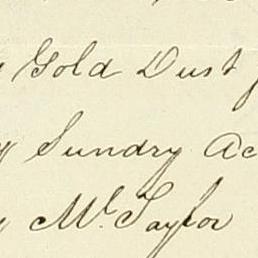 Gold Dust
Sundry Ac
Mr. Taylor